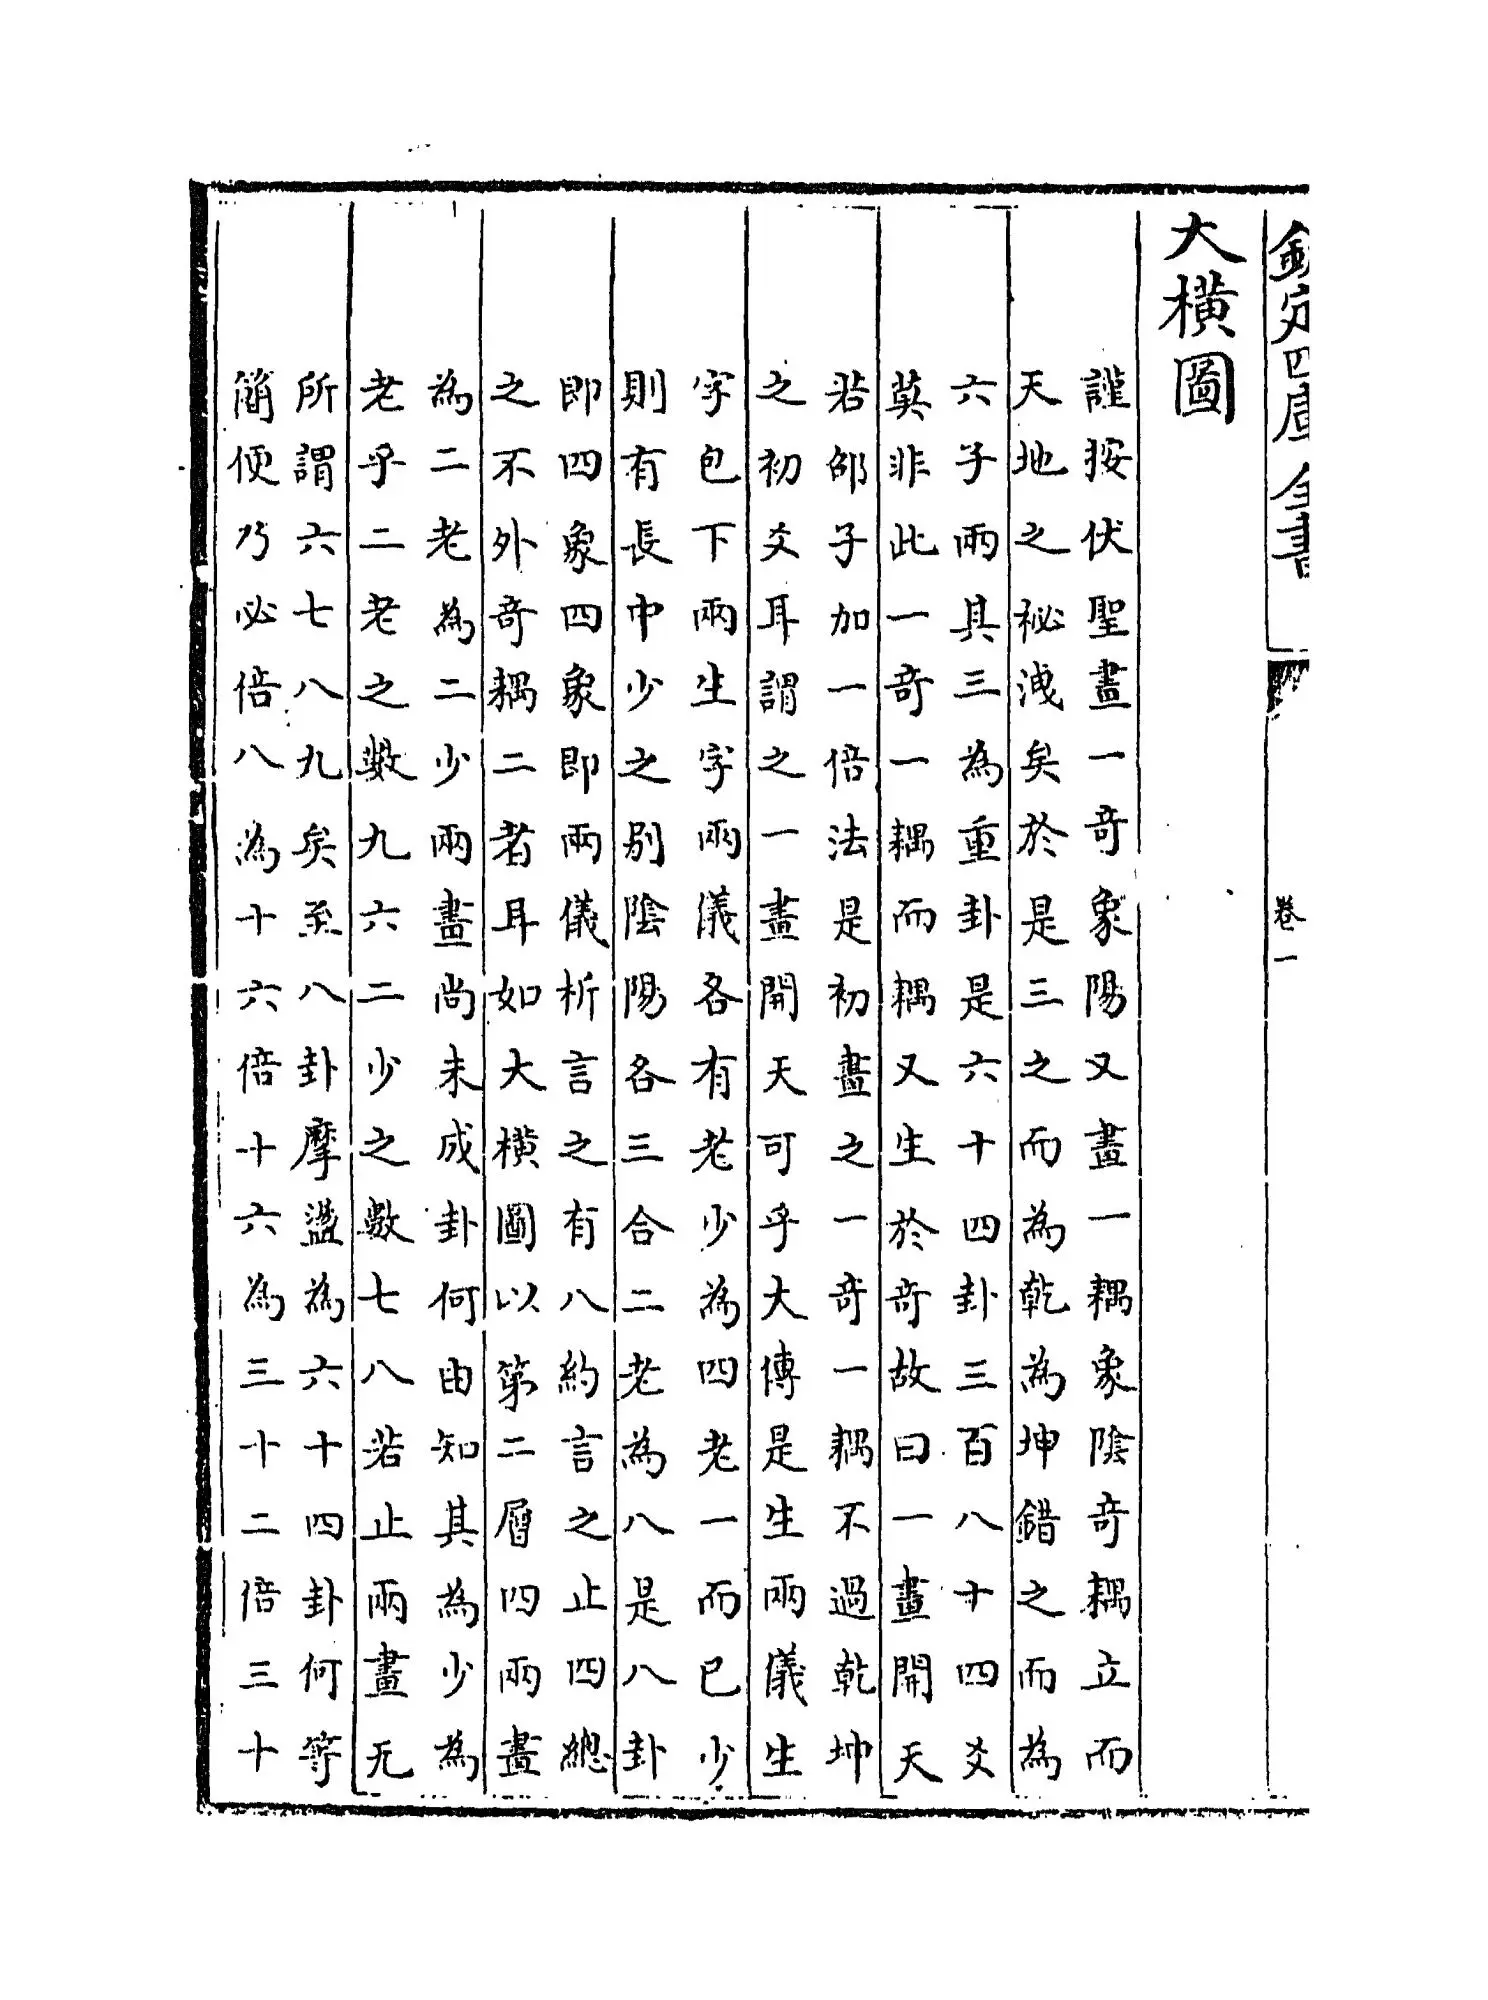 欽定四庫全書
卷一
大橫圖
謹按伏聖畫一奇象陽又畫一耦象陰奇耦立而
天地之秘洩矣於是三之而為乾為坤錯之而為
六子兩具三為重卦是六十四卦三百八十四爻
莫非此一奇一耦而耦又生於奇故曰一畫開天
若邵子加一倍法是初畫之一奇一耦不過乾坤
之初爻耳謂之一畫開天可乎大傳是生兩儀生
字包下兩生字兩儀各有老少為四老一而已少
則有長中少之别陰陽各三合二老為八是八卦
即四象四象即兩儀析言之有八約言之止四總
之不外奇耦二者耳如大橫圖以第二層四兩畫
為二老為二少兩畫尚未成卦何由知其為少為
老乎二老之數九六二少之數七八若止兩畫无
所謂六七八九矣至八卦摩盪為六十四卦何等
簡便乃必倍八為十六倍十六為三十二倍三十